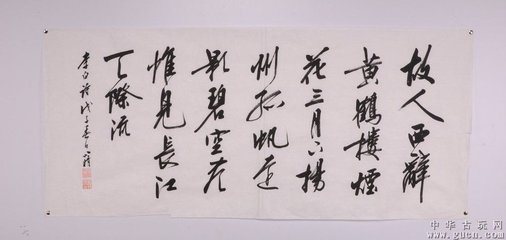 故人西辭
黄鶴樓煙
花三月下揚
州孤帆远
影碧空尽
惟見長江
天際流
李白詩戊子春
中华古玩网
www.gucn.com